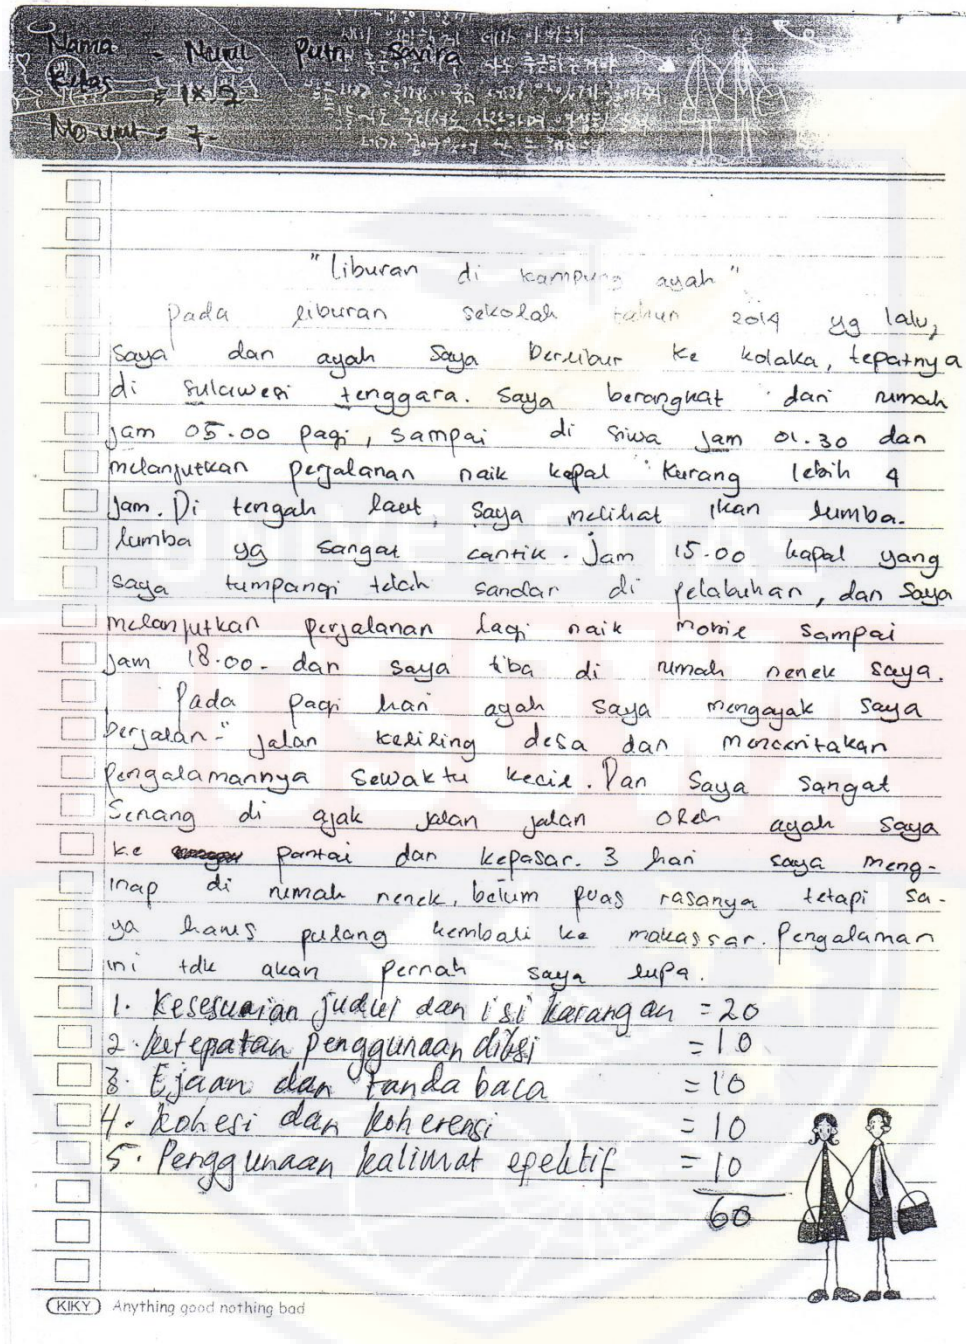 Nama = Nurul Putri Savira
Kelas = IX.2
No urut = 7.
"Liburan di kampung ayah"
Pada liburan sekolah tahun 2014 yg lalu,
Saya dan ayah saya berlibur ke kolaka, tepatnya
di sulawesi tenggara. Saya berangkat dari rumah
jam 05.00 pagi, sampai di siwa jam 01.30 dan
melanjutkan perjalanan naik kapal kurang lebih 4
jam. Di tengah laut, saya melihat ikan lumba-
lumba yg sangat cantik. Jam 15.00 kapal yang
saya tumpangi telah sandar di pelabuhan, dan saya
melanjutkan perjalanan lagi naik sampai
jam 18.00. dan saya tiba di rumah nenek saya.
Pada pagi hari ayah saya mengajak saya
berjalan-" jalan keliling desa dan menceritakan
pengalamannya sewaktu kecil. Dan saya sangat
Senang di ajak jalan jalan oleh ayah saya
ke pantai dan kepasar. 3 hari saya meng-
inap di rumah nenek, belum puas rasanya tetapi sa-
ya harus pulang kembali ke makassar. Pengalaman
ini tdk akan pernah saya lupa.
1. Kesesuaian judul dan isi karangan = 20
2. ketepatan penggunaan diksi = 10
3. Ejaan dan tanda baca = 10
4. kohesi dan koherensi = 10
5. Penggunaan kalimat epektif = 10
60
KIKY Anything good nothing bad